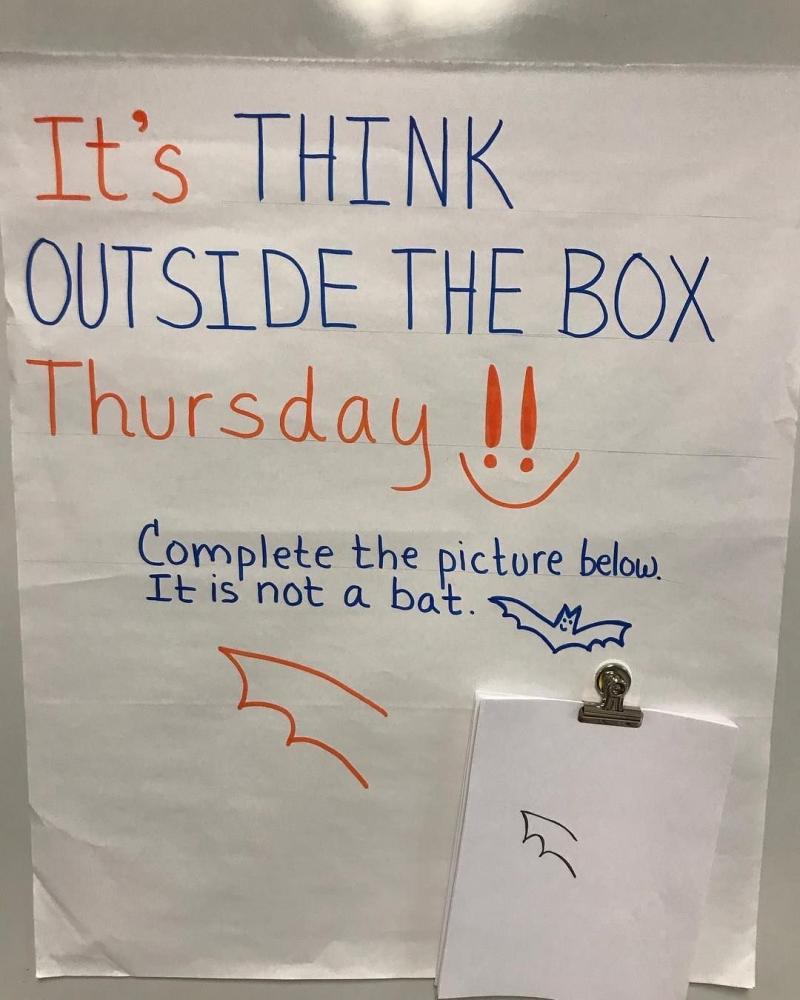 It's THINK
OUTSIDE THE BOX
Thursday !!
Complete the picture below.
It is not a bat.